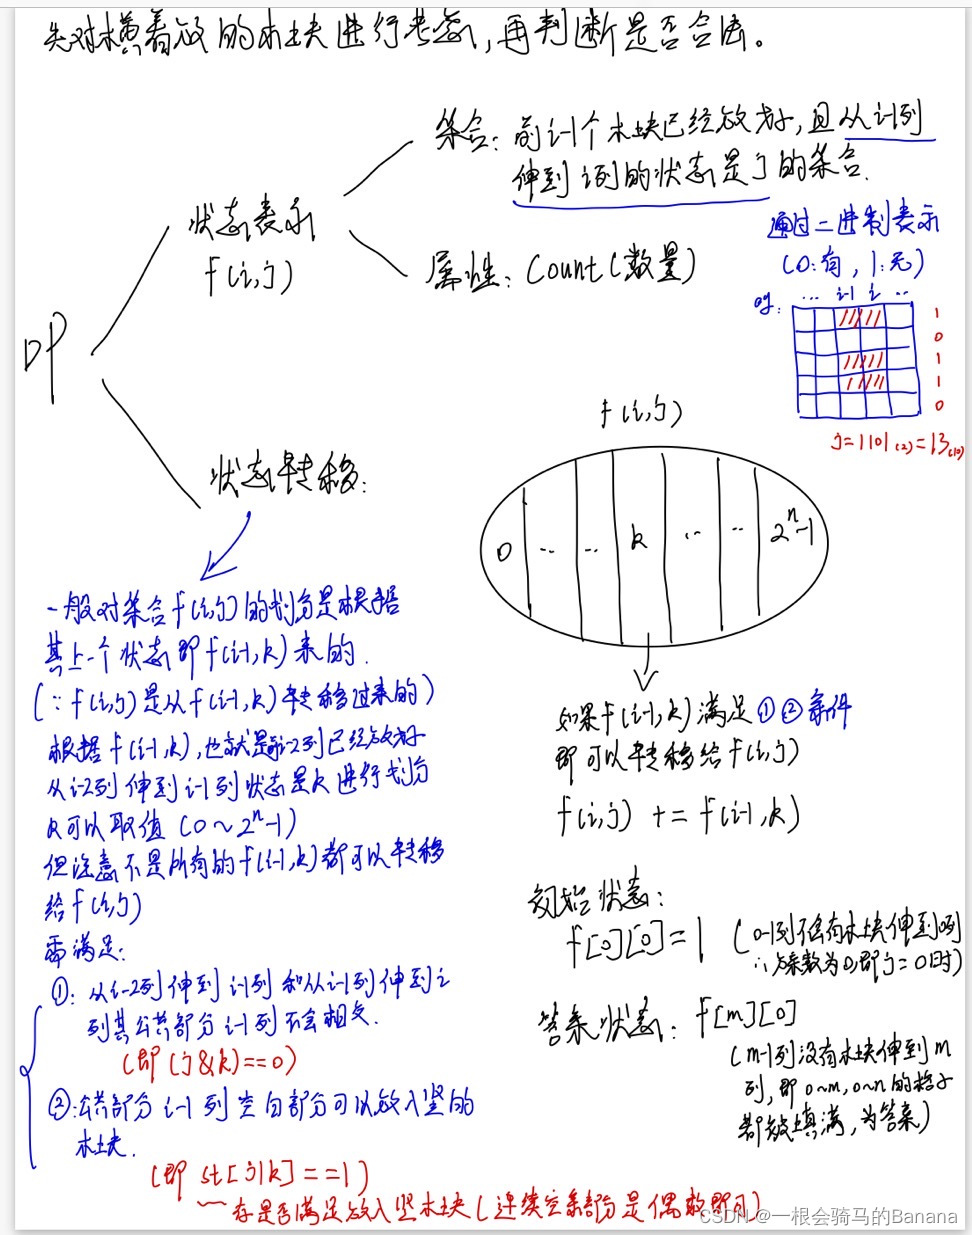 先对横着放的木块进行考虑，再判断是否合法。
DP
状态表示
f(i,j)
集合：前i-1个木块已经放好，且从i-1列
伸到i列的状态是j的集合.
属性：Count(数量)
通过二进制表示
(0:有，1:无)
eg:
... i-1 i ...
1
0
1
1
0
j=1101(2)=13(10)
状态转移：
f(i,j)
0 ... ... k ... ... 2^n-1
一般对集合f(i,j)的划分是根据
其上一个状态即f(i-1,k)来的.
(∵f(i,j)是从f(i-1,k)转移过来的)
根据f(i-1,k),也就是前i-2列已经放好
从i-2列伸到i-1列状态是k进行划分
k可以取值(0~2^n-1)
但注意不是所有的f(i-1,k)都可以转移
给f(i,j)
需满足：
①：从i-2列伸到i-1列和从i-1列伸到i
列其公共部分i-1列不会相交.
(即(j&k)==0)
②：公共部分i-1列空白部分可以放入竖的
木块.
(即st[j|k]==1)
存是否满足放入竖木块(连续空余部分是偶数即可)
如果f(i-1,k)满足①②条件
即可以转移给f(i,j)
f(i,j) += f(i-1,k)
初始状态：
f[0][0]=1 (0-1列不会有木块伸到0列
∴方案数为0,即j=0时)
答案状态：f[m][0]
(m-1列没有木块伸到m
列,即0~m,0~n的格子
都被填满,为答案)
CSDN @一根会骑马的Banana